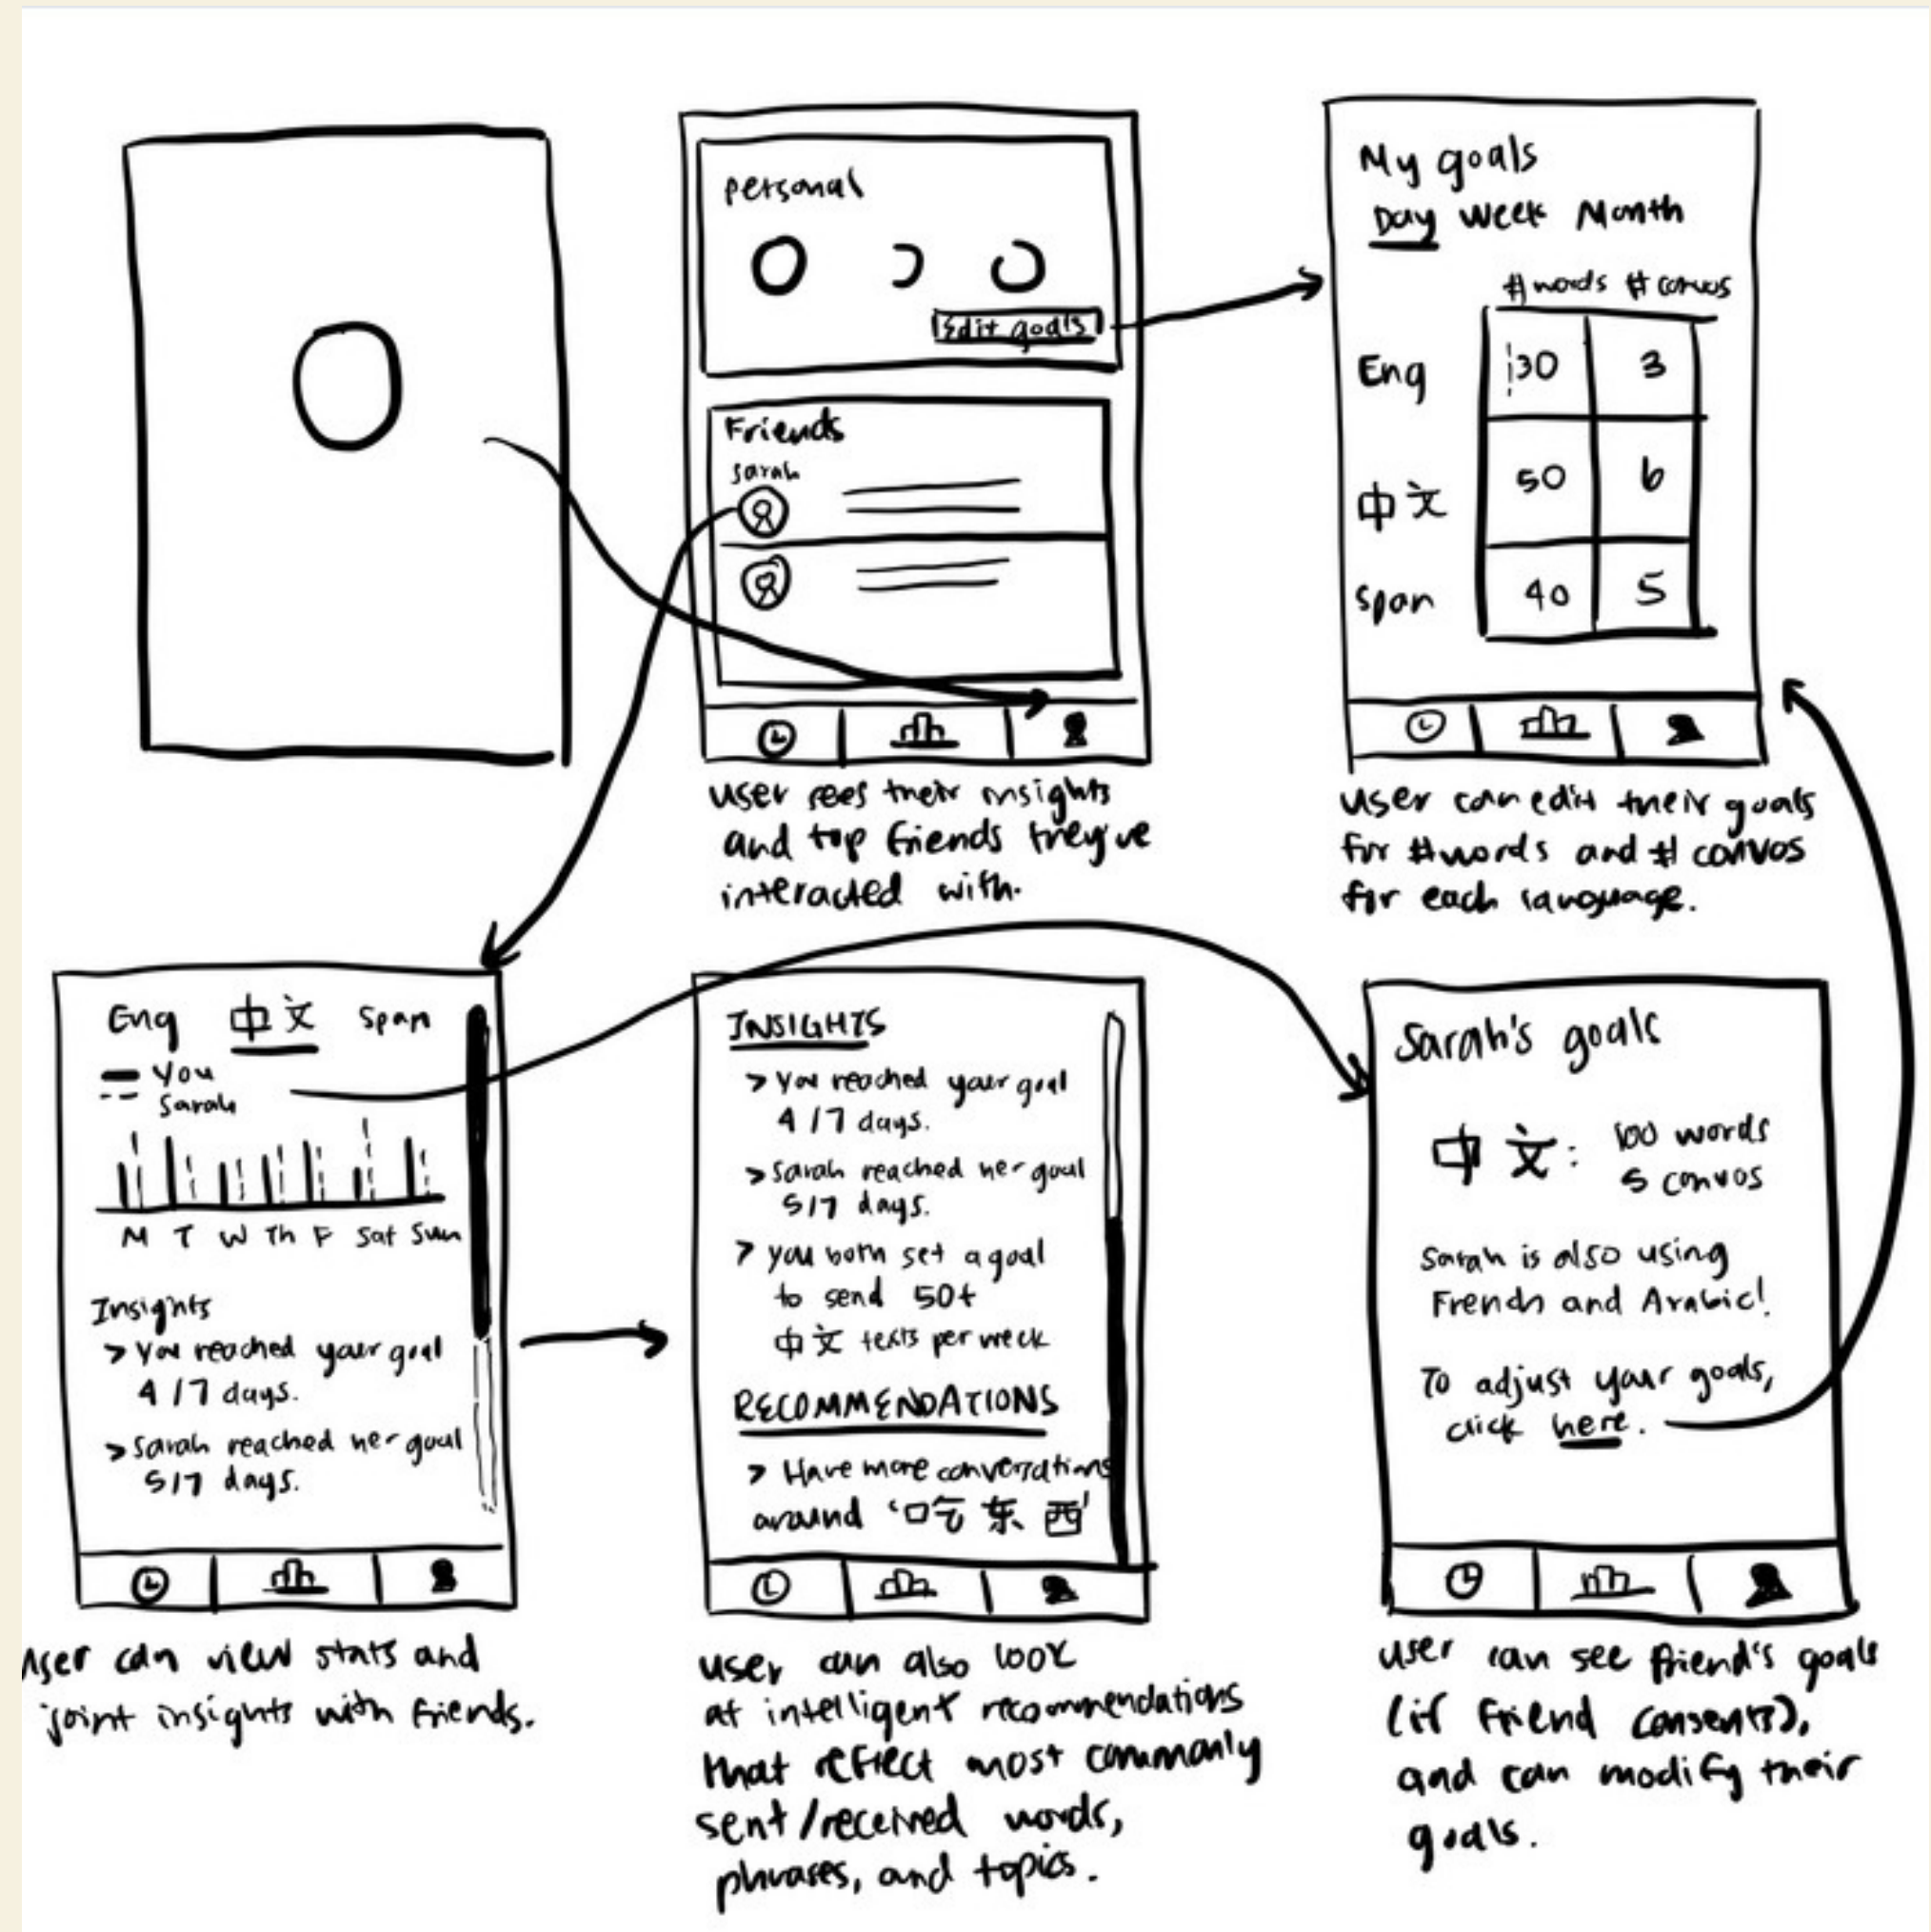 Personal
Edit goals
Friends
Sarah
user sees their insights
and top friends they've
interacted with.
My goals
Day Week Month
# words # convos
Eng 30 3
中文 50 6
Span 40 5
user can edit their goals
for # words and # convos
for each language.
Eng 中文 Span
You
Sarah
M T W Th F Sat Sun
Insights
> You reached your goal
4/7 days.
> Sarah reached her goal
5/7 days.
user can view stats and
joint insights with friends.
INSIGHTS
> You reached your goal
4/7 days.
> Sarah reached her goal
5/7 days.
> you both set a goal
to send 50+
中文 texts per week
RECOMMENDATIONS
> Have more conversations
around '吃东西'
user can also look
at intelligent recommendations
that reflect most commonly
sent/received words,
phrases, and topics.
Sarah's goals
中文: 100 words
5 convos
Sarah is also using
French and Arabic!
To adjust your goals,
click here.
user can see friend's goals
(if friend consents),
and can modify their
goals.